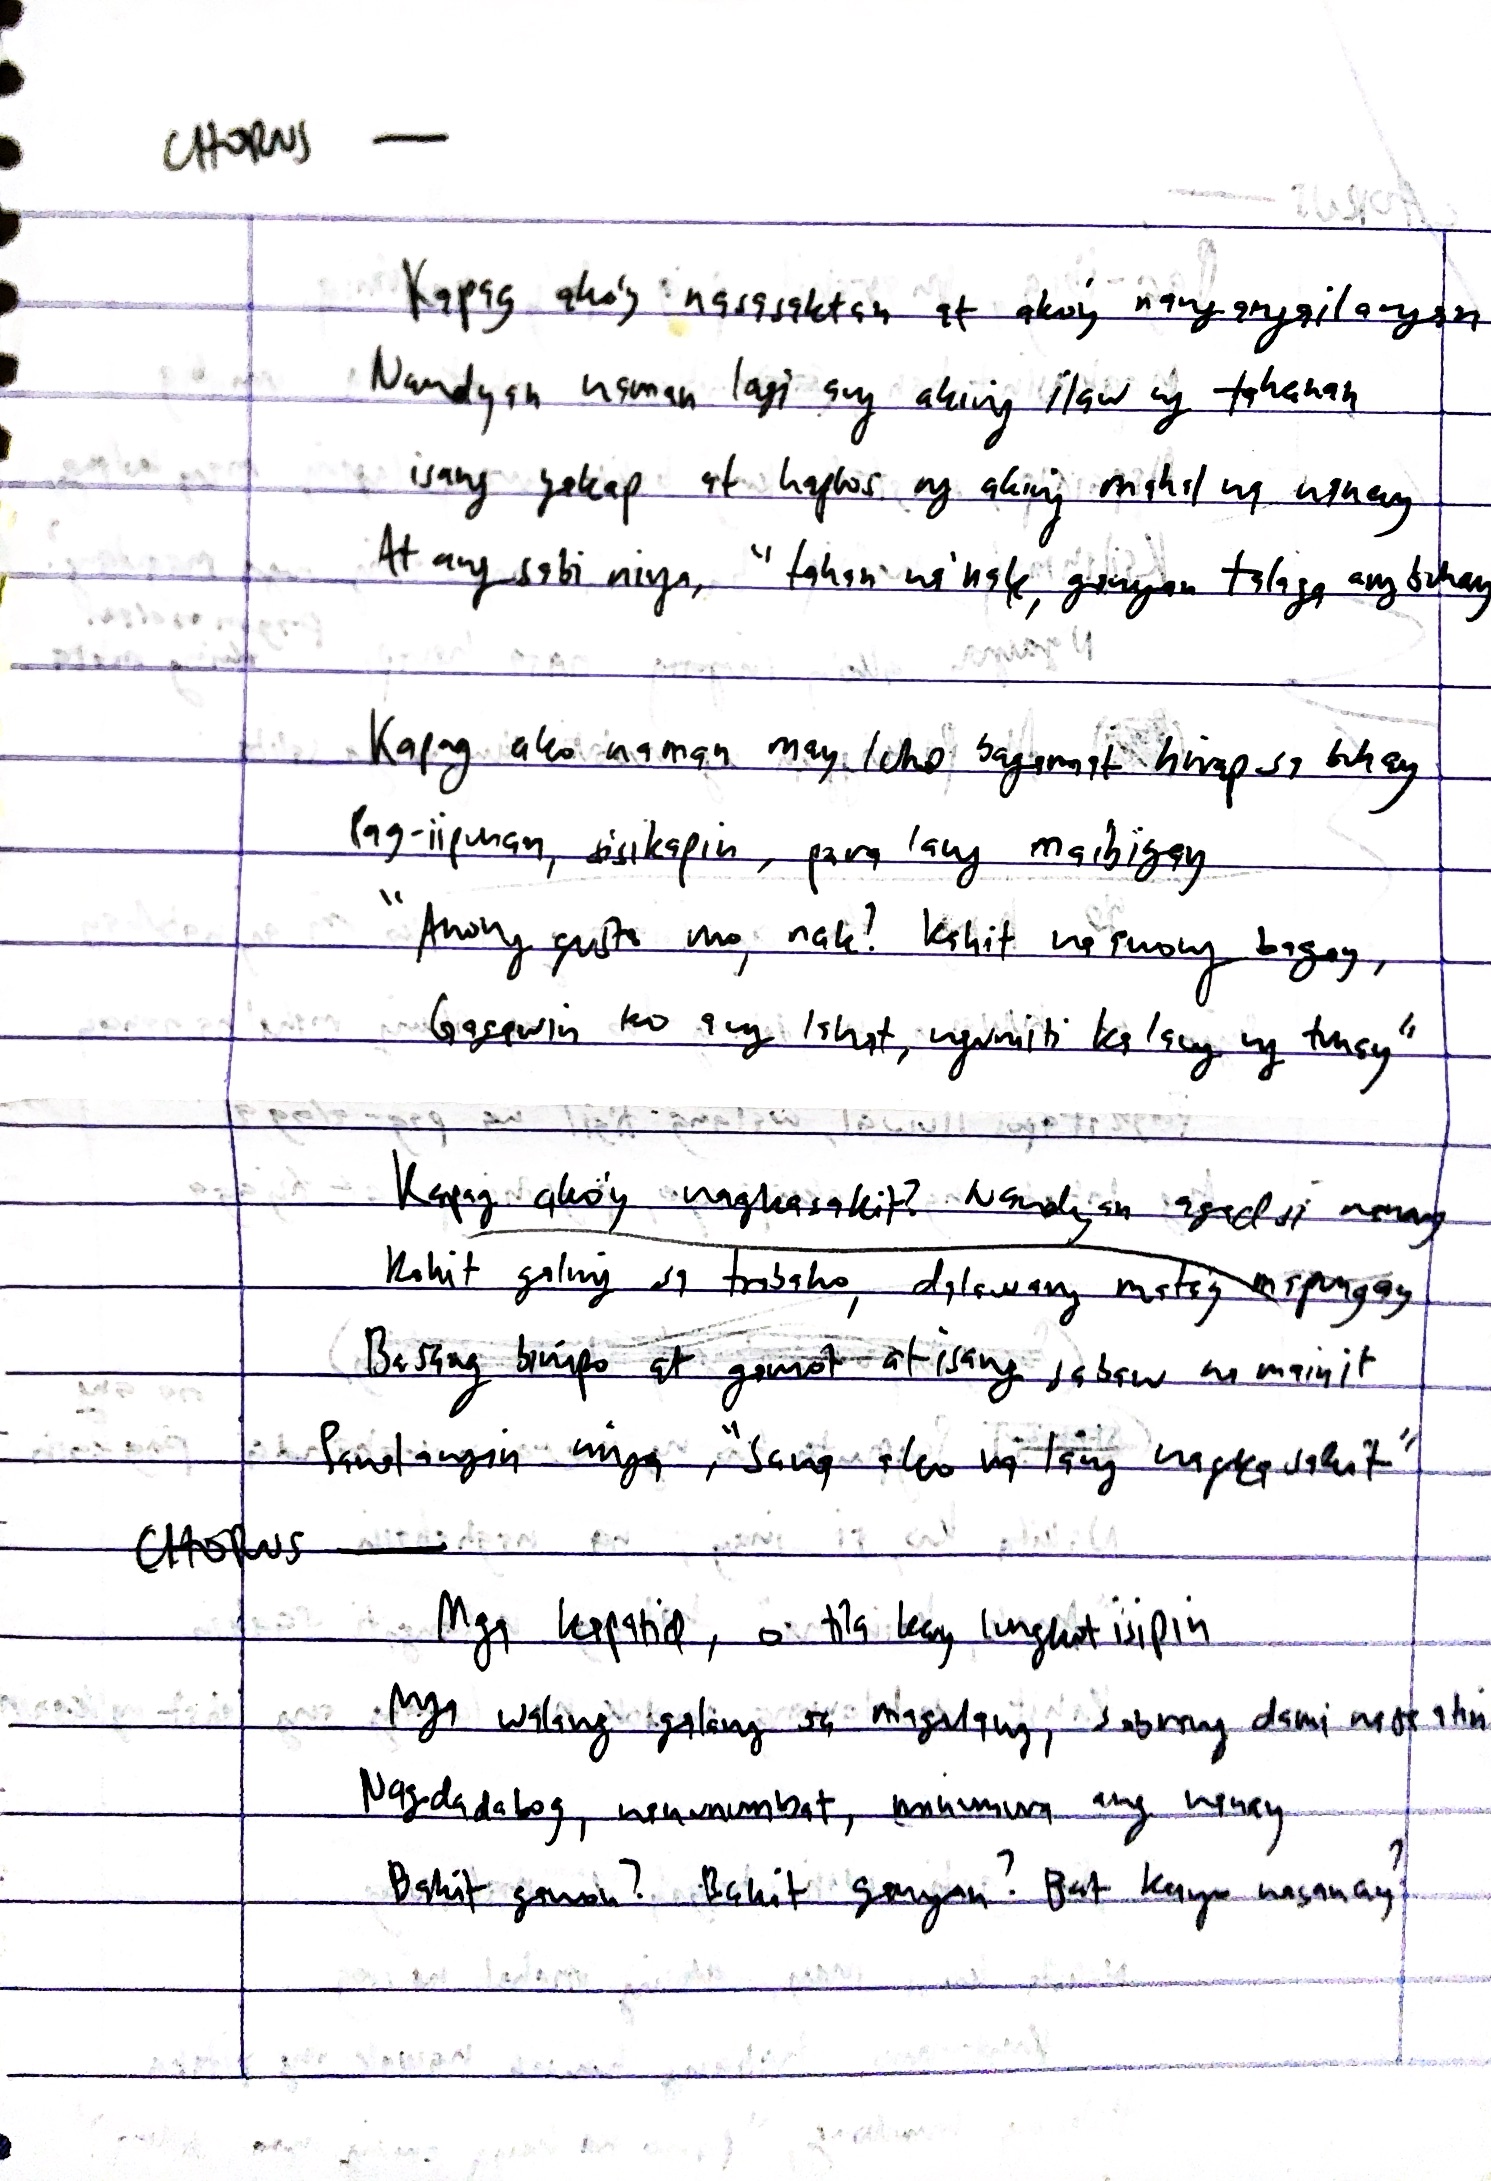 CHORUS —
Kapag ako'y nasasaktan at ako'y nangangailangan
Nandyan naman lagi ang aking ilaw ng tahanan
isang yakap at haplos ng aking mahal na nanay
At ang sabi niya, "tahan na 'nak, ganyan talaga ang buhay
Kapag ako naman may luho bagamat hirap sa buhay
Pag-iipunan, sisikapin, para lang maibigay
"Anong gusto mo, nak? Kahit na anong bagay,
Gagawin ko ang lahat, ngumiti ka lang ng tunay"
Kapag ako'y nagkasakit? Nandyan agad si nanay
Kahit galing sa trabaho, dalawang mata'y mapungay
Basang bimpo at gamot at isang sabaw na mainit
Panalangin niya, "Sana ako na lang nagkasakit"
CHORUS —
Mga kapatid, o tila kay lungkot isipin
Mga walang galang sa magulang, sobrang dami na sa atin
Nagdadabog, nanunumbat, minumura ang nanay
Bakit ganon? Bakit ganyan? Bat kayo nasanay?